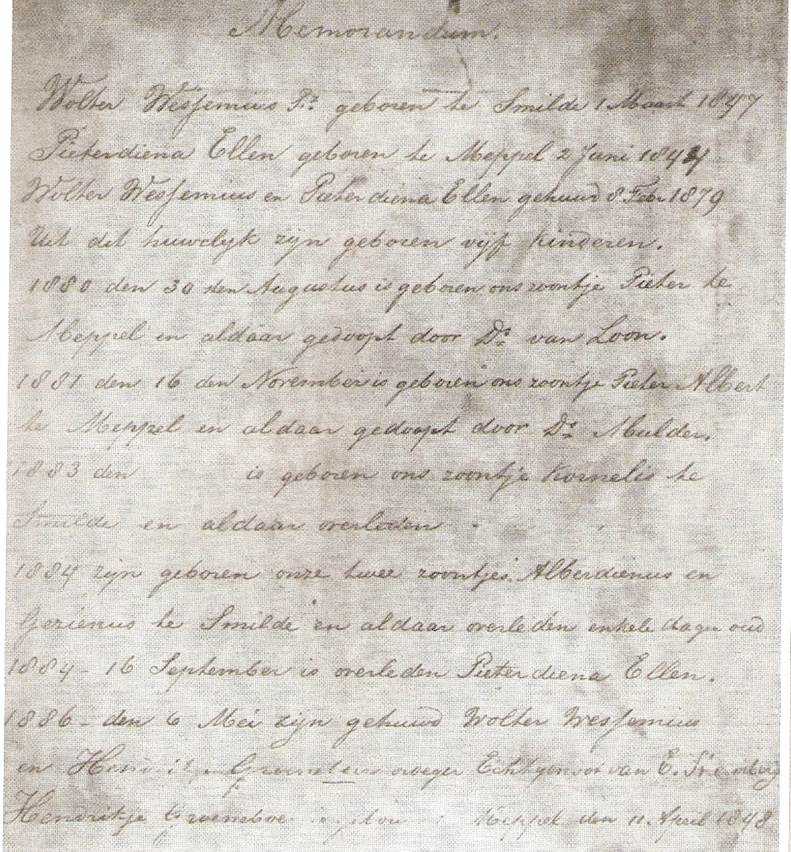 Memorandum.
Wolter Wessemius Pz geboren te Smilde 1 Maart 1847
Pieterdiena Ellen geboren te Meppel 2 Juni 1844
Wolter Wessemius en Pieterdiena Ellen gehuwd 8 Febr 1879
Uit dit huwelyk zijn geboren vijf kinderen.
1880 den 30 sten Augustus is geboren ons zoontje Pieter te
Meppel en aldaar gedoopt door Ds van Loon.
1881 den 16 den November is geboren ons zoontje Pieter Albert
te Meppel en aldaar gedoopt door Ds Mulder.
1883 den is geboren ons zoontje Kornelis te
Smilde en aldaar overleden
1884 zijn geboren onze twee zoontjes Alberdienus en
Gezienus te Smilde en aldaar overleden enkele dagen oud
1884 - 16 September is overleden Pieterdiena Ellen.
1886 - den 6 Mei zijn gehuwd Wolter Wessemius
en vroeger Echtgenoot van E.
Hendrikje Meppel den 11 April 1848